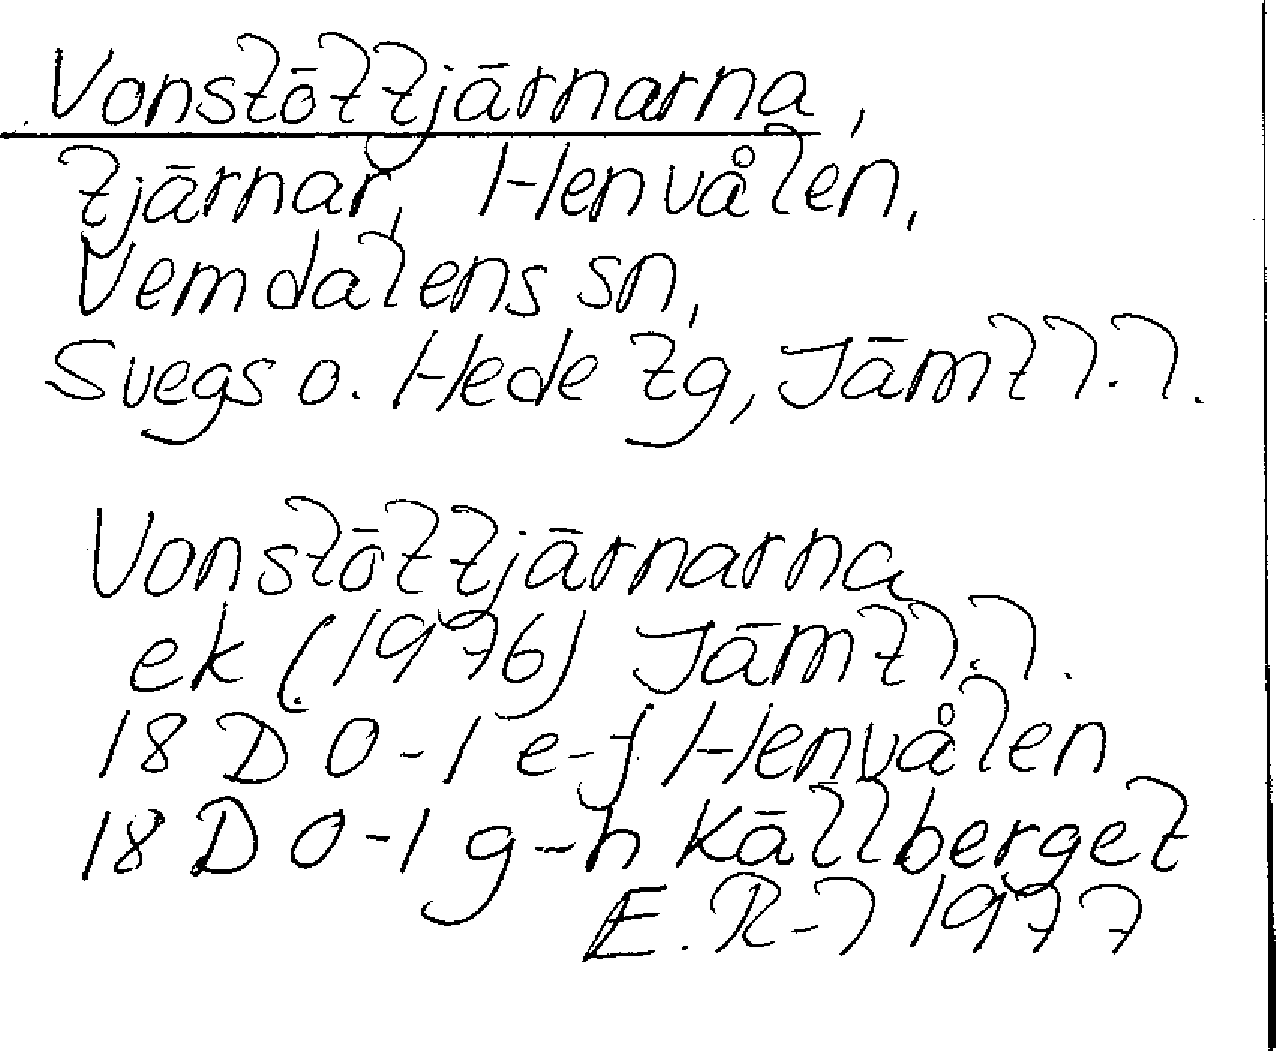 Vonstöttjärnarna,
tjärnar, Henvålen,
Vemdalens sn,
Svegs o. Hede tg, Jämtl. l.
Vonstöttjärnarna
ek (1976) Jämtl. l.
18 D 0-1 e-f Henvålen
18 D 0-1 g-h Källberget
E. R-l 1977